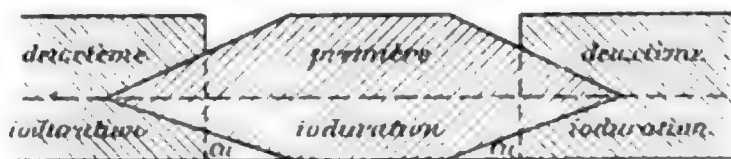 deuxième première deuxième
ioduration ioduration ioduration
a a